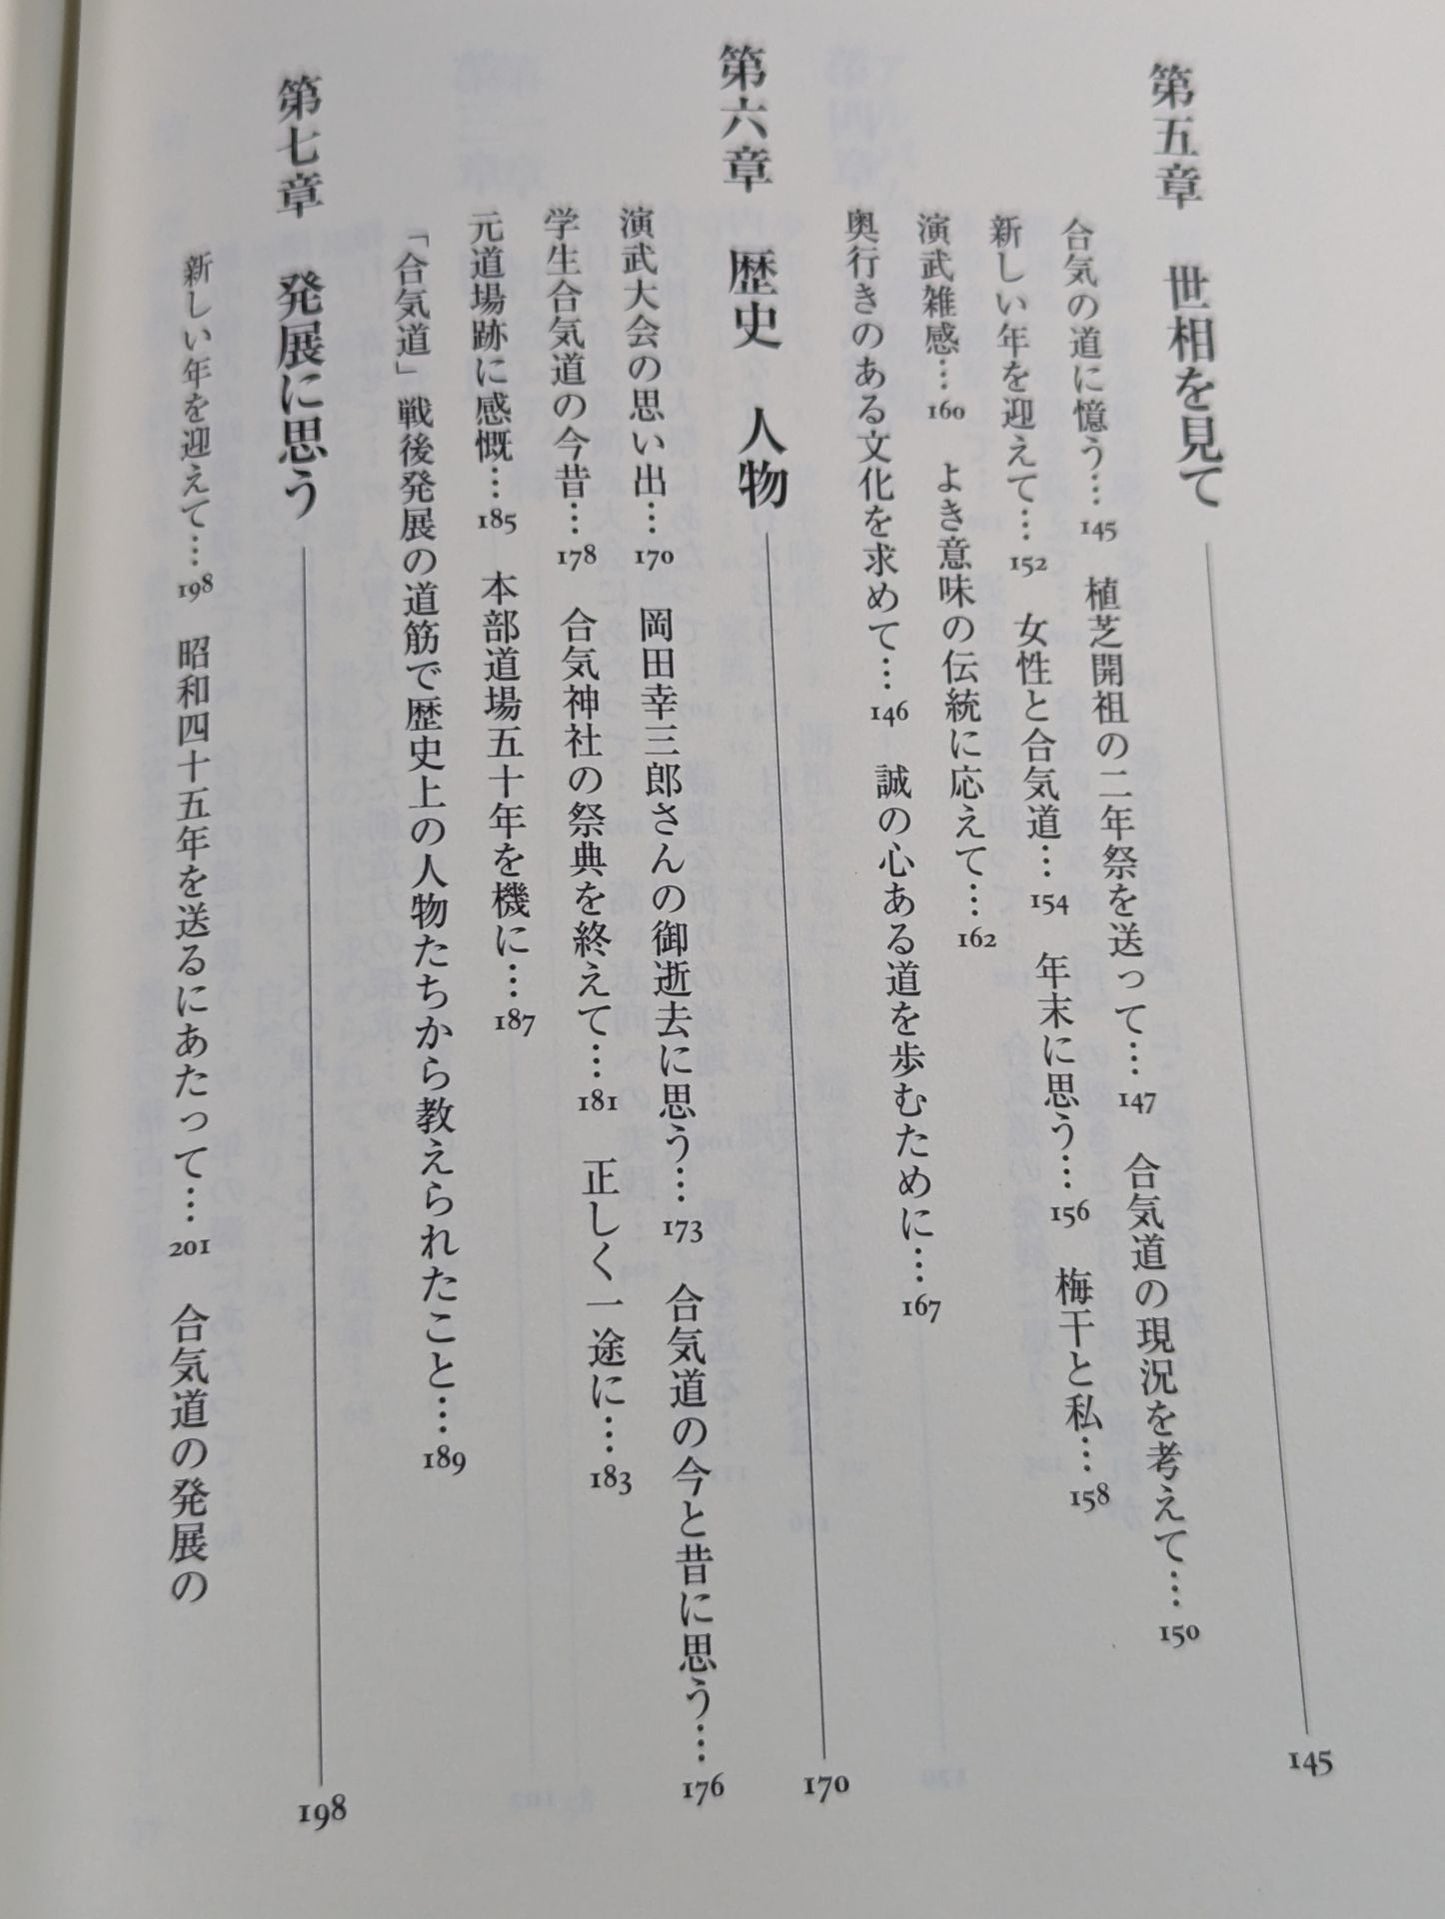 第五章　世相を見て 145
合気の道に憶う… 145　植芝開祖の二年祭を送って… 147　合気道の現況を考えて… 150
新しい年を迎えて… 152　女性と合気道… 154　年末に思う… 156　梅干と私… 158
演武雑感… 160　よき意味の伝統に応えて… 162
奥行きのある文化を求めて… 146　誠の心ある道を歩むために… 167
第六章　歴史　人物 170
演武大会の思い出… 170　岡田幸三郎さんの御逝去に思う… 173　合気道の今と昔に思う… 176
学生合気道の今昔… 178　合気神社の祭典を終えて… 181　正しく一途に… 183
元道場跡に感慨… 185　本部道場五十年を機に… 187
「合気道」戦後発展の道筋で歴史上の人物たちから教えられたこと… 189
第七章　発展に思う 198
新しい年を迎えて… 198　昭和四十五年を送るにあたって… 201　合気道の発展の